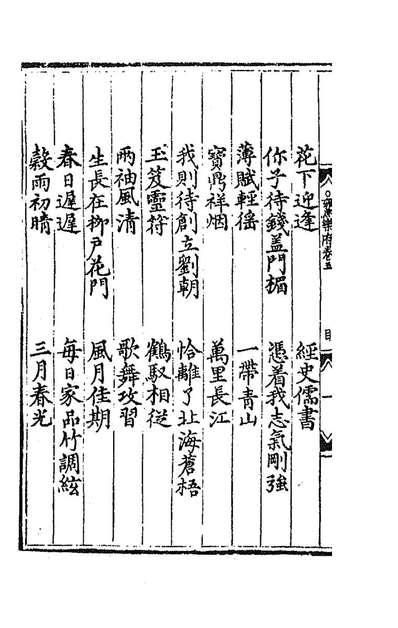 雍熙樂府卷五 目 一
花下迎逢 經史儒書
你子待錢盖門楣 憑着我志氣剛強
薄賦輕徭 一帶青山
寶鼎祥烟 萬里長江
我則待創立劉朝 恰離了北海蒼梧
玉笈靈符 鶴馭相從
兩袖風清 歌舞攻習
生長在柳戶花門 風月佳期
春日遲遲 每日家品竹調絃
穀雨初晴 三月春光